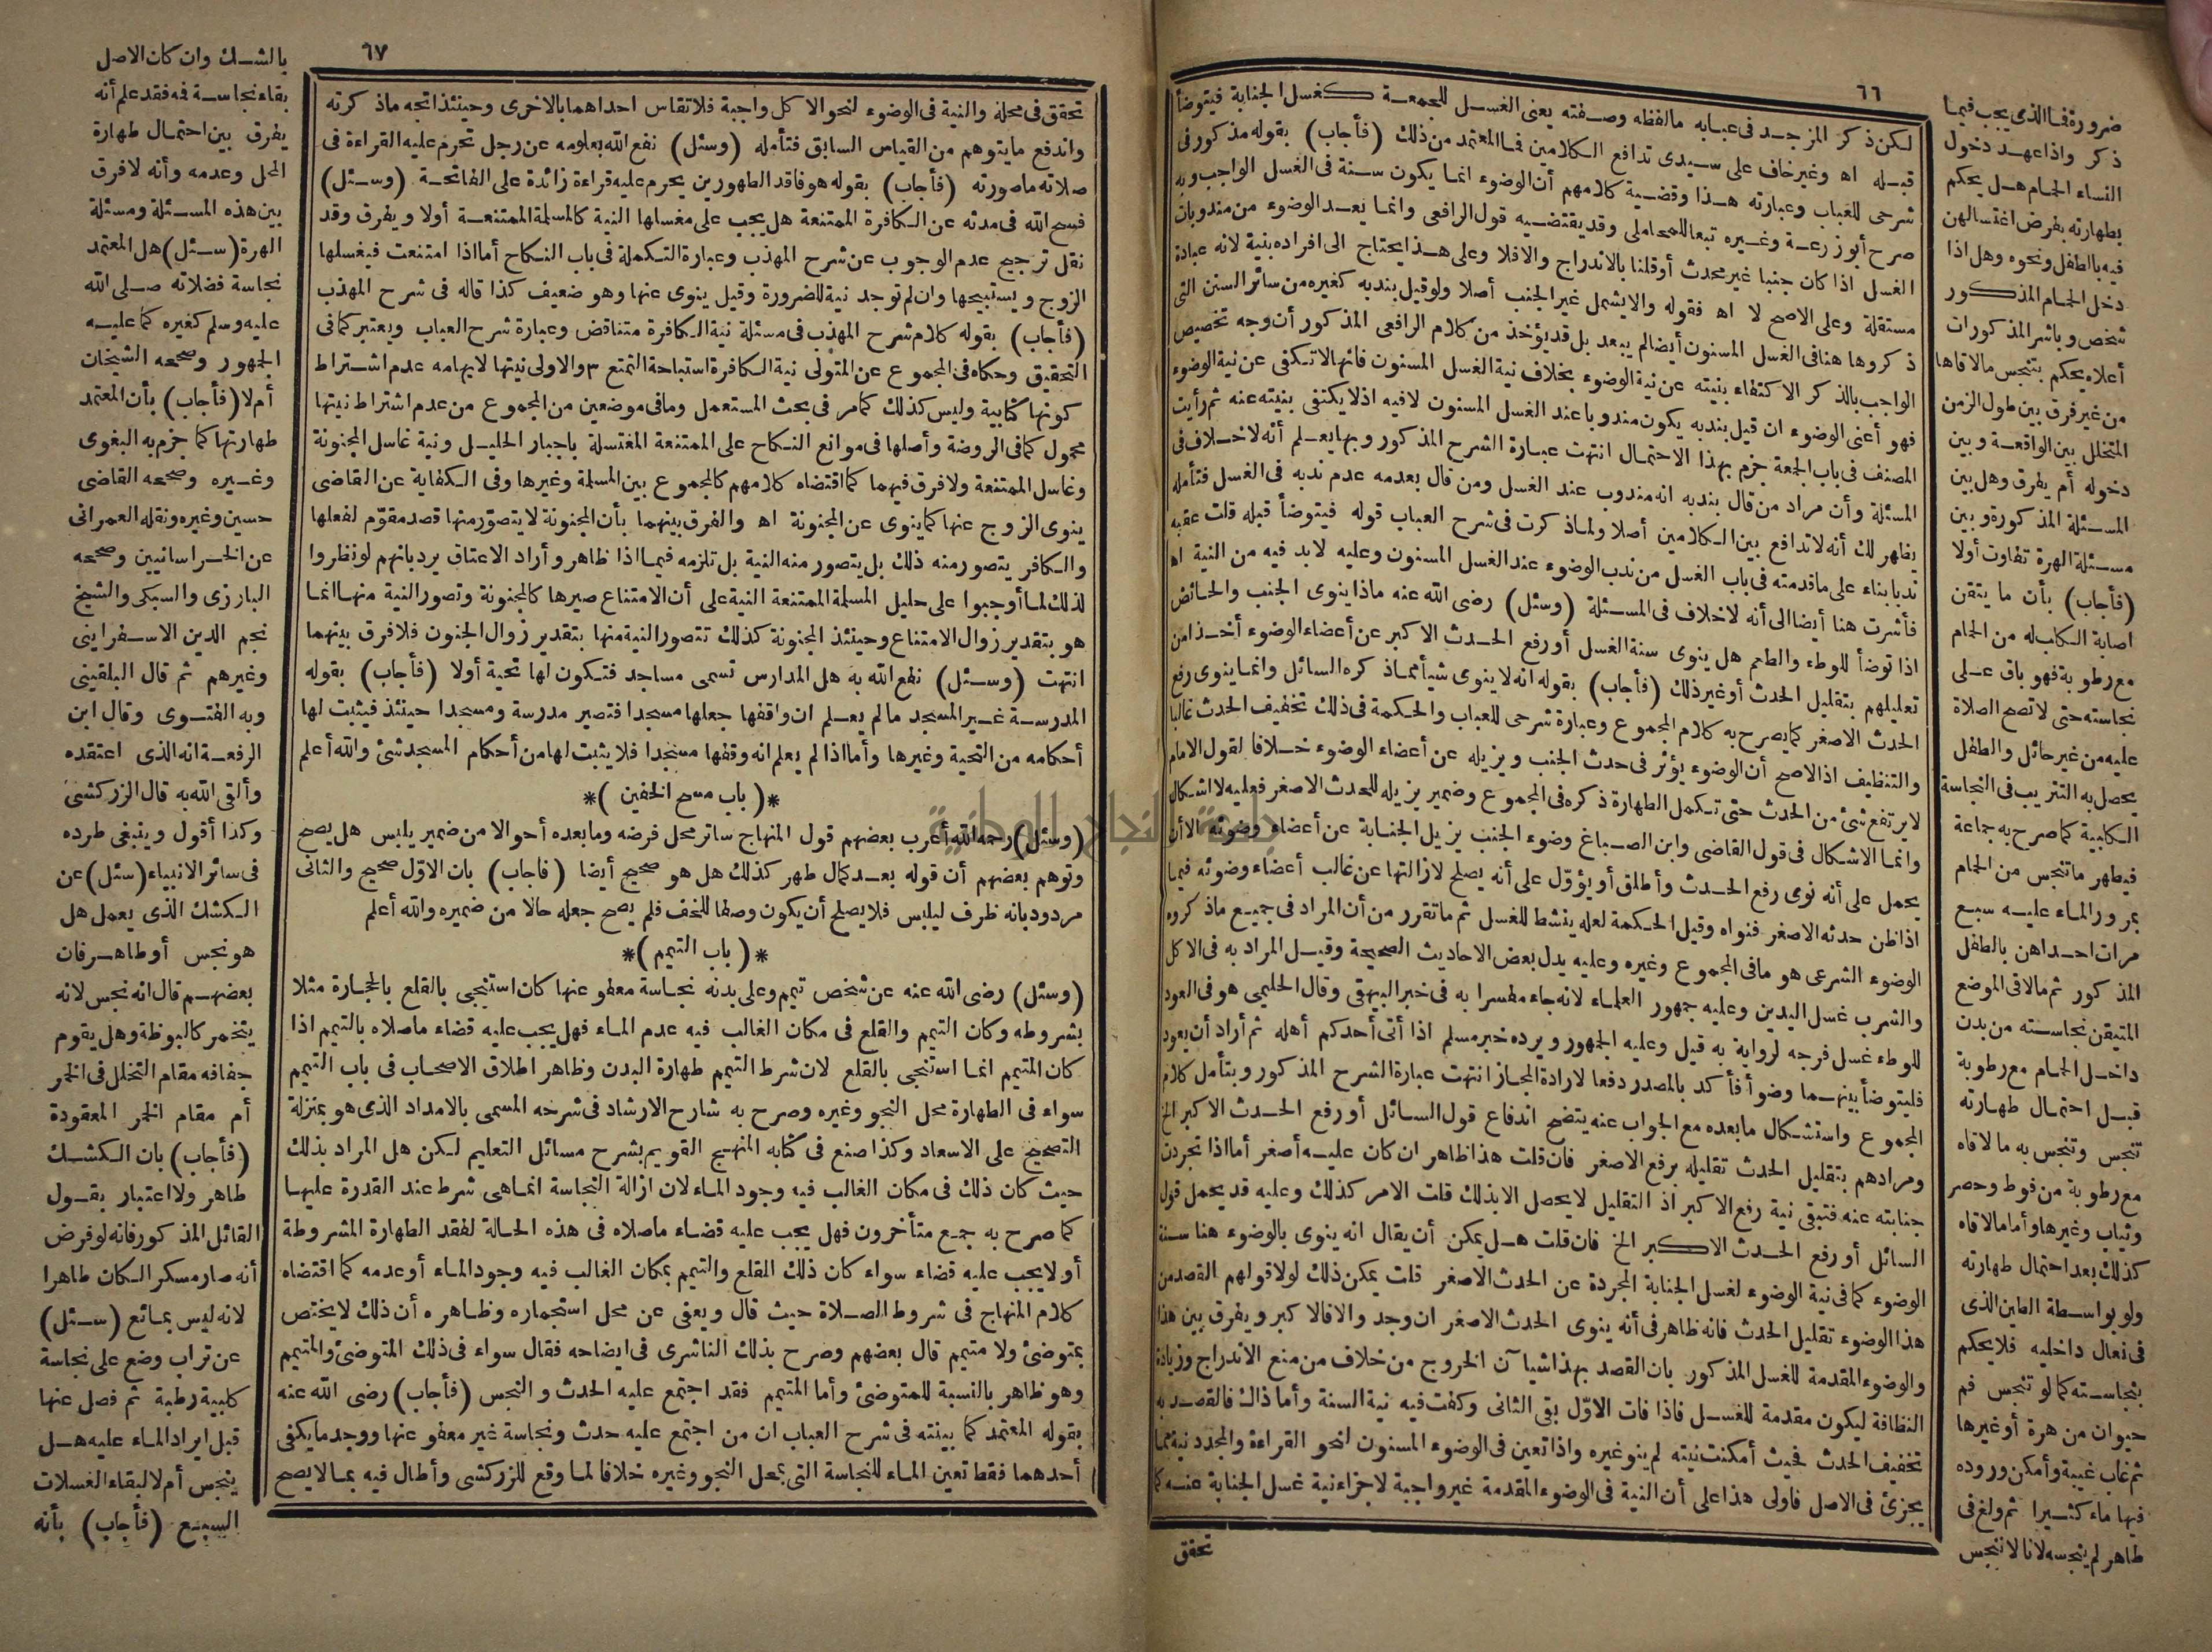 ٦٦
لكن ذكر المزجد فى عبابه مالفظه وصفته يعنى الغسل للجمعة كغسل الجنابة فيتوضأ
قبله اه وغير خاف على سيدى تدافع الكلامين فما المعتمد من ذلك (فأجاب) بقوله مذكور فى
شرحى للعباب وعبارته هذا وقضية كلامهم أن الوضوء انما يكون سنة فى الغسل الواجب وبه
صرح أبو زرعة وغيره تبعا للمحاملى وقد يقتضيه قول الرافعى وانما يعد الوضوء من مندوبات
الغسل اذا كان جنبا غير محدث أو قلنا بالاندراج والافلا وعلى هذا يحتاج الى افراده بنية لانه عبادة
مستقلة وعلى الاصح لا اه فقوله والا يشمل غير الجنب أصلا ولو قيل بندبه كغيره من سائر السنن التى
ذكروها هنا فى الغسل المسنون أيضا لم يبعد بل قد يؤخذ من كلام الرافعى المذكور أن وجه تخصيص
الواجب بالذكر الاكتفاء بنيته عن نية الوضوء بخلاف نية الغسل المسنون فانها لا تكفى عن نية الوضوء
فهو أعنى الوضوء ان قيل بندبه يكون مندوبا عند الغسل المسنون لا فيه اذ لا يكتفى بنيته عنه ثم رأيت
المصنف فى باب الجمعة جزم بهذا الاحتمال انتهت عبارة الشرح المذكور وبها يعلم أنه لا خلاف فى
المسئلة وأن مراد من قال بندبه انه مندوب عند الغسل ومن قال بعدمه عدم ندبه فى الغسل فتأمله
يظهر لك أنه لا تدافع بين الكلامين أصلا ولما ذكرت فى شرح العباب قوله فيتوضأ قبله قلت عقبه
ندبا بناء على ما قدمته فى باب الغسل من ندب الوضوء عند الغسل المسنون وعليه لا بد فيه من النية اه
فأشرت هنا أيضا الى أنه لا خلاف فى المسئلة (وسئل) رضى الله عنه ماذا ينوى الجنب والحائض
اذا توضأ للوطء والطعم هل ينوى سنة الغسل أو رفع الحدث الاكبر عن أعضاء الوضوء أخذا من
تعليلهم بتقليل الحدث أو غير ذلك (فأجاب) بقوله انه لا ينوى شيأ مما ذكره السائل وانما ينوى رفع
الحدث الاصغر كما يصرح به كلام المجموع وعبارة شرحى للعباب والحكمة فى ذلك تخفيف الحدث غالبا
والتنظيف اذ الاصح أن الوضوء يؤثر فى حدث الجنب ويزيله عن أعضاء الوضوء خلافا لقول الامام
لا يرتفع شئ من الحدث حتى تكمل الطهارة ذكره فى المجموع وضمير يزيله للحدث الاصغر فعليه لا اشكال
وانما الاشكال فى قول القاضى وابن الصباغ وضوء الجنب يزيل الجنابة عن أعضاء وضوئه الا أن
يحمل على أنه نوى رفع الحدث وأطلق أو يؤول على أنه يصلح لازالتها عن غالب أعضاء وضوئه فيما
اذا ظن حدثه الاصغر فنواه وقيل الحكمة لعله ينشط للغسل ثم ما تقرر من أن المراد فى جميع ما ذكروه
الوضوء الشرعى هو ما فى المجموع وغيره وعليه يدل بعض الاحاديث الصحيحة وقيل المراد به فى الاكل
والشرب غسل اليدين وعليه جمهور العلماء لانه جاء مفسرا به فى خبر البيهقى وقال الحليمى هو فى العود
للوطء غسل فرجه لرواية به قيل وعليه الجمهور ويرده خبر مسلم اذا أتى أحدكم أهله ثم أراد أن يعود
فليتوضأ بينهما وضوأ فأكد بالمصدر دفعا لارادة المجاز انتهت عبارة الشرح المذكور وبتأمل كلام
المجموع واستشكال ما بعده مع الجواب عنه يتضح اندفاع قول السائل أو رفع الحدث الاكبر الخ
ومرادهم بتقليل الحدث تقليله برفع الاصغر فان قلت هذا ظاهر ان كان عليه أصغر أما اذا تجردت
جنابته عنه فتبقى نية رفع الاكبر اذ التقليل لا يحصل الا بذلك قلت الامر كذلك وعليه قد يحمل قول
السائل أو رفع الحدث الاكبر الخ فان قلت هل يمكن أن يقال انه ينوى بالوضوء هنا سنة
الوضوء كما فى نية الوضوء لغسل الجنابة المجردة عن الحدث الاصغر قلت يمكن ذلك لولا قولهم القصد من
هذا الوضوء تقليل الحدث فانه ظاهر فى أنه ينوى الحدث الاصغر ان وجد والا فالاكبر ويفرق بين هذا
والوضوء المقدمة للغسل المذكور بان القصد بهذا شيآن الخروج من خلاف من منع الاندراج وزيادة
النظافة ليكون مقدمة للغسل فاذا فات الاول بقى الثانى وكفت فيه نية السنة وأما ذاك فالقصد به
تخفيف الحدث فحيث أمكنت نيته لم ينو غيره واذا تعين فى الوضوء المسنون لنحو القراءة والمجدد نية مما
يجزئ فى الاصل فاولى هذا على أن النية فى الوضوء المقدمة غير واجبة لاجزاء نية غسل الجنابة عنه كما
تحقق
ضرورة فما الذى يجب فيما
ذكر واذا عهد دخول
النساء الحمام هل يحكم
بطهارته بفرض اغتسالهن
فيه بالطفل ونحوه وهل اذا
دخل الحمام المذكور
شخص وباشر المذكورات
أعلاه يحكم بتنجس ما لاقاها
من غير فرق بين طول الزمن
المتخلل بين الواقعة وبين
دخوله أم يفرق وهل بين
المسئلة المذكورة وبين
مسئلة الهرة تفاوت أولا
(فأجاب) بأن ما يتقن
اصابة الكلب له من الحمام
مع رطوبة فهو باق على
نجاسته حتى لا تصح الصلاة
عليه من غير حائل والطفل
يحصل به التتريب فى النجاسة
الكلبية كما صرح به جماعة
فيطهر ما تنجس من الحمام
بمرور الماء عليه سبع
مرات احداهن بالطفل
المذكور ثم مالاقى الموضع
المتيقن نجاسته من بدن
داخل الحمام مع رطوبة
قبل احتمال طهارته
تنجس وتنجس به ما لاقاه
مع رطوبة من فوط وحصر
وثياب وغيرها وأما مالاقاه
كذلك بعد احتمال طهارته
ولو بواسطة الطين الذى
فى نعال داخليه فلا يحكم
بنجاسته كما لو تنجس فم
حيوان من هرة أو غيرها
ثم غاب غيبة وأمكن وروده
فيها ماء كثيرا ثم ولغ فى
طاهر لم ينجسه لانا لا ننجس
٦٧
تحقق فى محله والنية فى الوضوء لنحو الاكل واجبة فلا تقاس احداهما بالاخرى وحينئذ اتجه ماذكرته
واندفع ما يتوهم من القياس السابق فتأمله (وسئل) نفع الله بعلومه عن رجل تحرم عليه القراءة فى
صلاته ماصورته (فأجاب) بقوله هو فاقد الطهورين يحرم عليه قراءة زائدة على الفاتحة (وسئل)
فسح الله فى مدته عن الكافرة الممتنعة هل يجب على مغسلها النية كالمسلمة الممتنعة أولا ويفرق وقد
نقل ترجيح عدم الوجوب عن شرح المهذب وعبارة التكملة فى باب النكاح أما اذا امتنعت فيغسلها
الزوج ويستبيحها وان لم توجد نية للضرورة وقيل ينوى عنها وهو ضعيف كذا قاله فى شرح المهذب
(فأجاب) بقوله كلام شرح المهذب فى مسئلة نية الكافرة متناقض وعبارة شرح العباب ويعتبر كما فى
التحقيق وحكاه فى المجموع عن المتولى نية الكافرة استباحة التمتع ٣ والاولى نيتها لايهامه عدم اشتراط
كونها كتابية وليس كذلك كما مر فى بحث المستعمل وما فى موضعين من المجموع من عدم اشتراط نيتها
محمول كما فى الروضة وأصلها فى موانع النكاح على الممتنعة المغتسلة باجبار الحليل ونية غاسل المجنونة
وغاسل الممتنعة ولا فرق فيهما كما اقتضاه كلامهم كالمجموع بين المسلمة وغيرها وفى الكفاية عن القاضى
ينوى الزوج عنها كما ينوى عن المجنونة اه والفرق بينهما بأن المجنونة لا يتصور منها قصد مقوم لفعلها
والكافر يتصور منه ذلك بل يتصور منه النية بل تلزمه فيما اذا ظاهر وأراد الاعتاق يرد بانهم لو نظروا
لذلك لما أوجبوا على حليل المسلمة الممتنعة النية على أن الامتناع صيرها كالمجنونة وتصور النية منها انما
هو بتقدير زوال الامتناع وحينئذ المجنونة كذلك تتصور النية منها بتقدير زوال الجنون فلا فرق بينهما
انتهت (وسئل) نفع الله به هل المدارس تسمى مساجد فتكون لها تحية أولا (فأجاب) بقوله
المدرسة غير المسجد مالم يعلم ان واقفها جعلها مسجدا فتصير مدرسة ومسجدا حينئذ فيثبت لها
أحكامه من التحية وغيرها وأما اذا لم يعلم انه وقفها مسجدا فلا يثبت لها من أحكام المسجد شئ والله أعلم
*(باب مسح الخفين)*
(وسئل) رحمه الله أعرب بعضهم قول المنهاج ساتر محل فرضه وما بعده أحوالا من ضمير يلبس هل يصح
وتوهم بعضهم أن قوله بعد كمال طهر كذلك هل هو صحيح أيضا (فأجاب) بان الاول صحيح والثانى
مردود بانه ظرف ليلبس فلا يصلح أن يكون وصفا للخف فلم يصح جعله حالا من ضميره والله أعلم
*(باب التيمم)*
(وسئل) رضى الله عنه عن شخص تيمم وعلى بدنه نجاسة معفو عنها كان استنجى بالقلع بالحجارة مثلا
بشروطه وكان التيمم والقلع فى مكان الغالب فيه عدم الماء فهل يجب عليه قضاء ماصلاه بالتيمم اذا
كان المتيمم انما استنجى بالقلع لان شرط التيمم طهارة البدن وظاهر اطلاق الاصحاب فى باب التيمم
سواء فى الطهارة محل النجو وغيره وصرح به شارح الارشاد فى شرحه المسمى بالامداد الذى هو بمنزلة
التصحيح على الاسعاد وكذا صنع فى كتابه المنهج القويم بشرح مسائل التعليم لكن هل المراد بذلك
حيث كان ذلك فى مكان الغالب فيه وجود الماء لان ازالة النجاسة انما هى شرط عند القدرة عليها
كما صرح به جمع متأخرون فهل يجب عليه قضاء ماصلاه فى هذه الحالة لفقد الطهارة المشروطة
أو لا يجب عليه قضاء سواء كان ذلك القلع والتيمم بمكان الغالب فيه وجود الماء أو عدمه كما اقتضاه
كلام المنهاج فى شروط الصلاة حيث قال ويعفى عن محل استجماره وظاهره أن ذلك لا يختص
بمتوضئ ولا متيمم قال بعضهم وصرح بذلك الناشرى فى ايضاحه فقال سواء فى ذلك المتوضئ والمتيمم
وهو ظاهر بالنسبة للمتوضئ وأما المتيمم فقد اجتمع عليه الحدث والنجس (فأجاب) رضى الله عنه
بقوله المعتمد كما بينته فى شرح العباب ان من اجتمع عليه حدث ونجاسة غير معفو عنها ووجد ما يكفى
أحدهما فقط تعين الماء للنجاسة التى بمحل النجو وغيره خلافا لما وقع للزركشى وأطال فيه بما لا يصح
بالشك وان كان الاصل
بقاء نجاسة فمه فقد علم أنه
يفرق بين احتمال طهارة
المحل وعدمه وأنه لا فرق
بين هذه المسئلة ومسئلة
الهرة (سئل) هل المعتمد
نجاسة فضلاته صلى الله
عليه وسلم كغيره كما عليه
الجمهور وصححه الشيخان
أم لا (فأجاب) بأن المعتمد
طهارتها كما جزم به البغوى
وغيره وصححه القاضى
حسين وغيره ونقله العمرانى
عن الخراسانيين وصححه
البارزى والسبكى والشيخ
نجم الدين الاسفراينى
وغيرهم ثم قال البلقينى
وبه الفتوى وقال ابن
الرفعة انه الذى اعتقده
وألقى الله به قال الزركشى
وكذا أقول وينبغى طرده
فى سائر الانبياء (سئل) عن
الكشك الذى يعمل هل
هو نجس أو طاهر فان
بعضهم قال انه نجس لانه
يتخمر كالبوظة وهل يقوم
جفافه مقام التخلل فى الخمر
أم مقام الخمر المعقودة
(فأجاب) بان الكشك
طاهر ولا اعتبار بقول
القائل المذكور فانه لو فرض
أنه صار مسكرا لكان طاهرا
لانه ليس بمائع (سئل)
عن تراب وضع على نجاسة
كلبية رطبة ثم فصل عنها
قبل ايراد الماء عليه هل
ينجس أم لا لبقاء الغسلات
السبع (فأجاب) بأنه